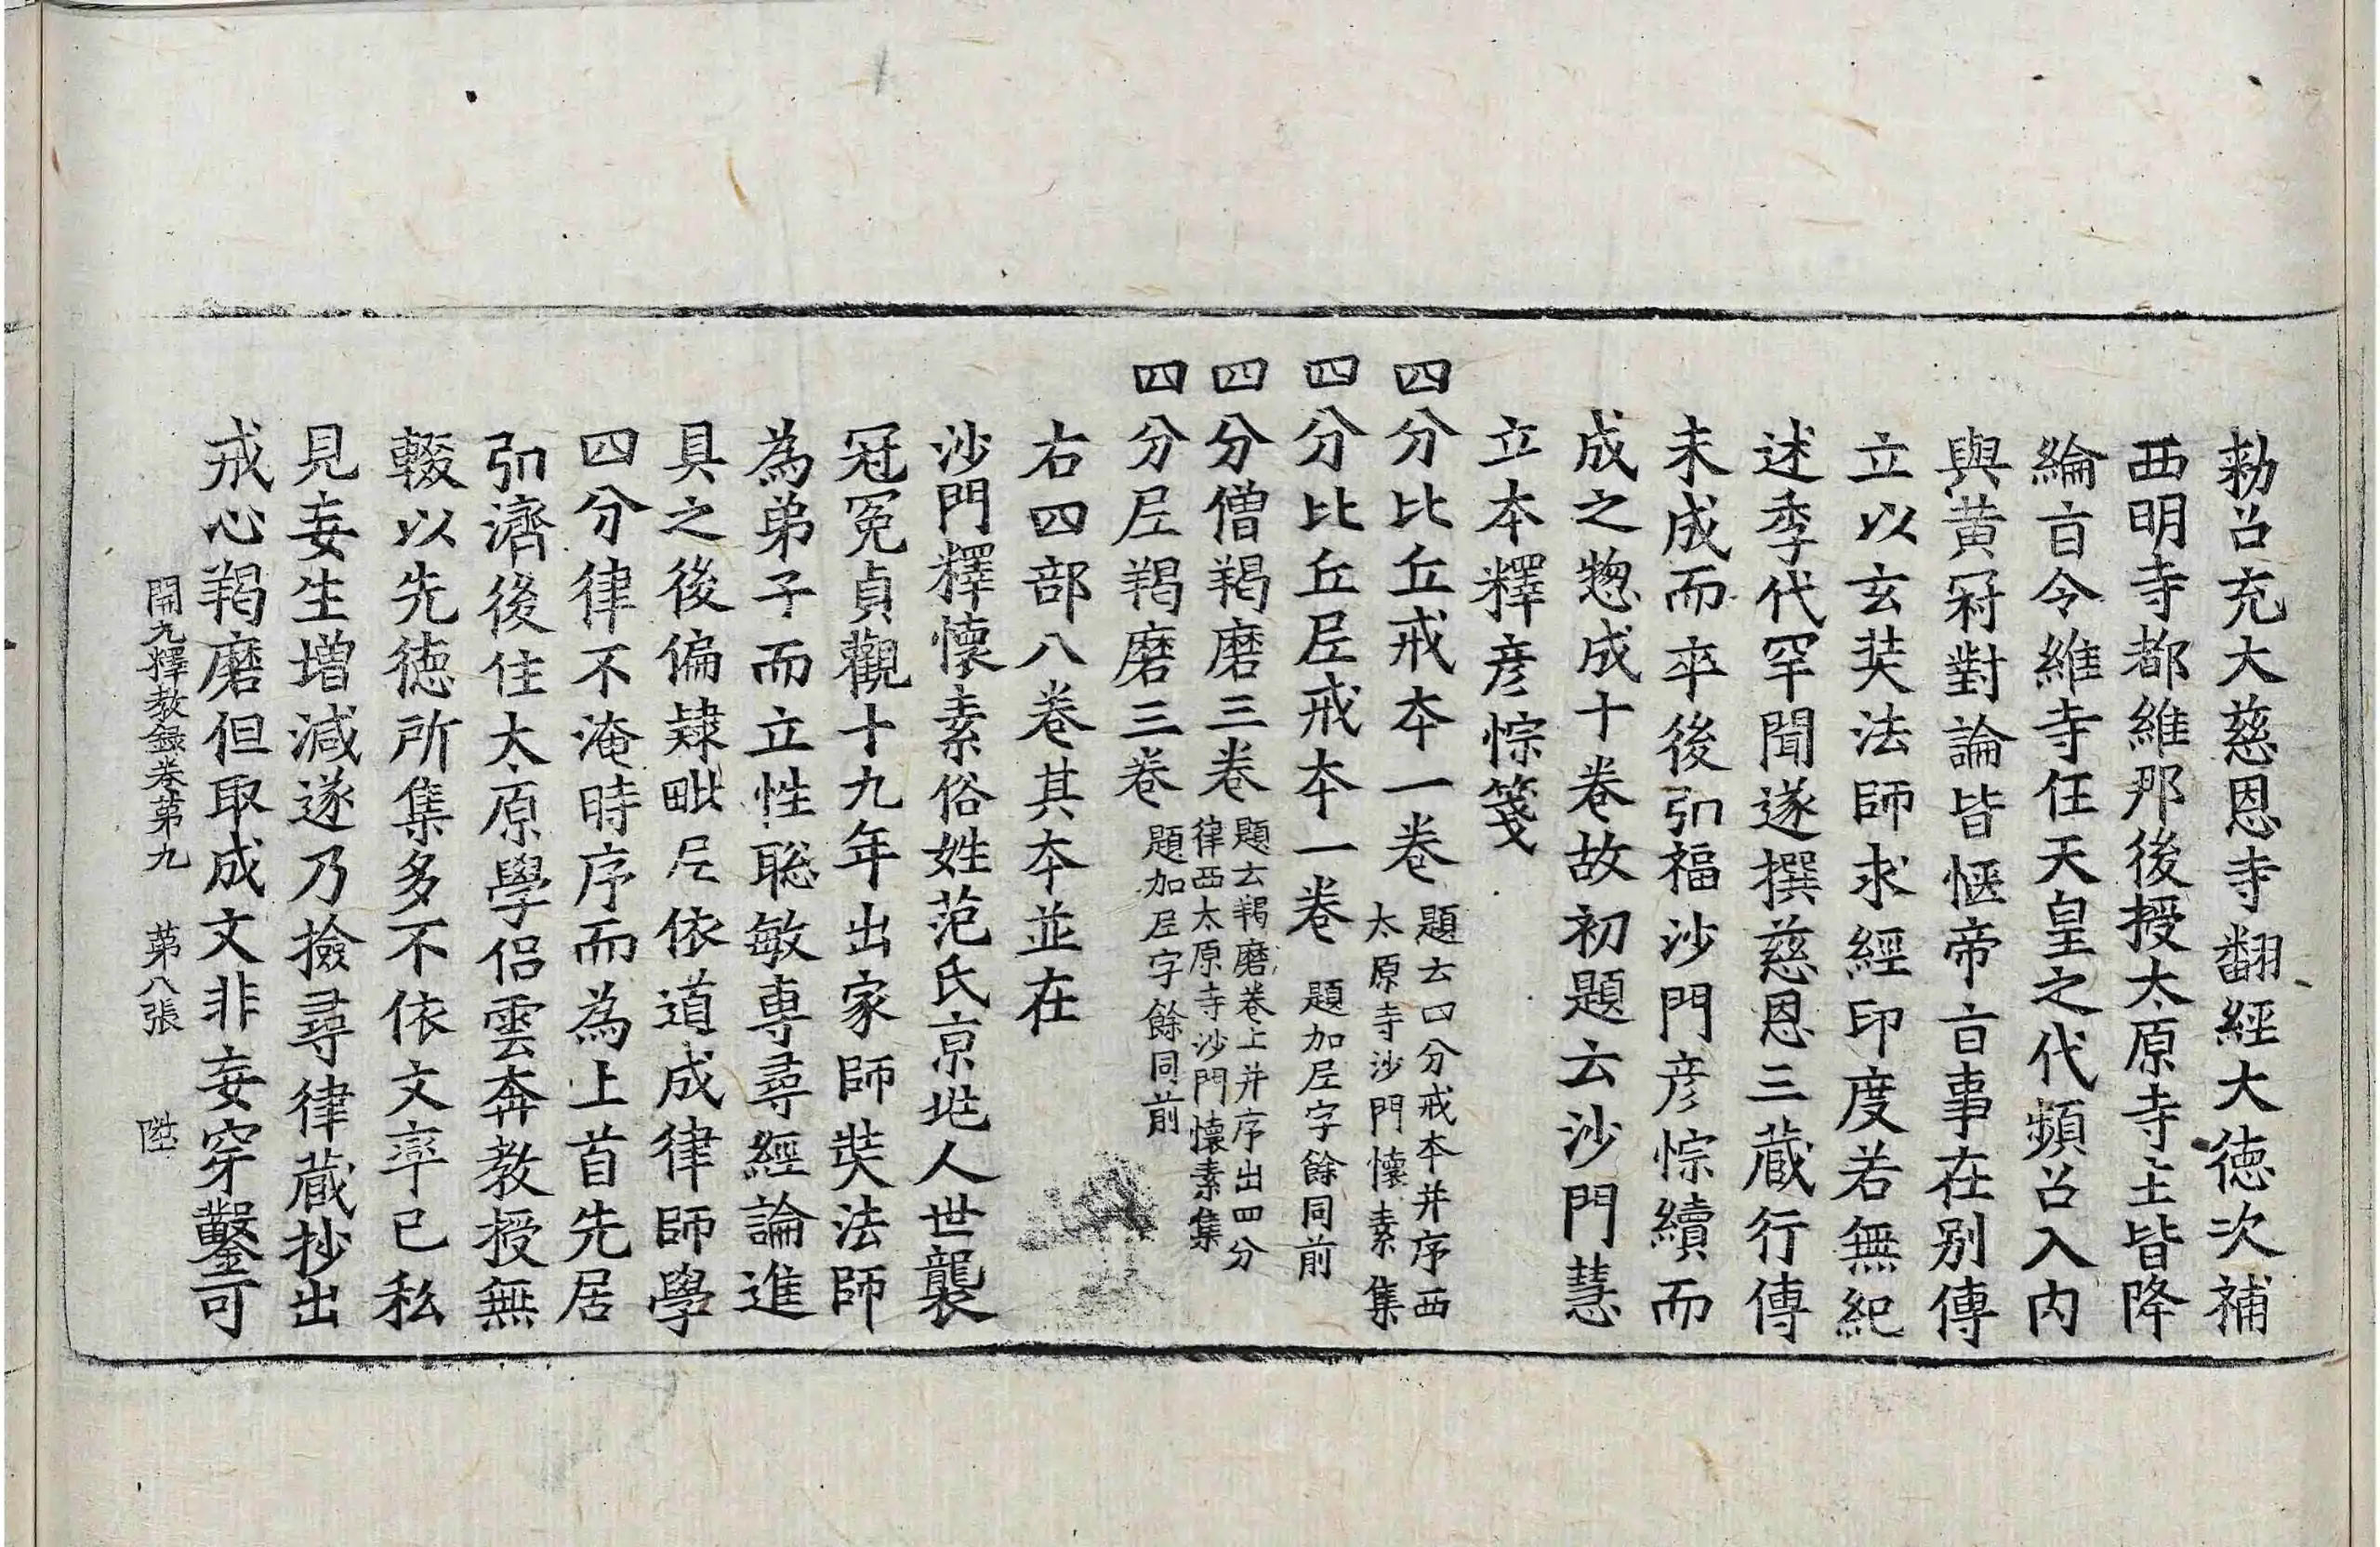 勑召充大慈恩寺翻經大德次補
西明寺都維那後授太原寺主皆降
綸旨令維寺任天皇之代頻召入內
與黃冠對論皆愜帝旨事在別傳
立以玄奘法師求經印度若無紀
述季代罕聞遂撰慈恩三藏行傳
未成而卒後弘福沙門彥悰續而
成之惣成十卷故初題云沙門慧
立本釋彥悰箋
四分比丘戒本一卷 題云四分戒本并序西太原寺沙門懷素集
四分比丘尼戒本一卷 題加尼字餘同前
四分僧羯磨三卷 題云羯磨卷上并序出四分律西太原寺沙門懷素集
四分尼羯磨三卷 題加尼字餘同前
右四部八卷其本並在
沙門釋懷素俗姓范氏京兆人世襲
冠冕貞觀十九年出家師奘法師
為弟子而立性聡敏專尋經論進
具之後偏隷毗尼依道成律師學
四分律不淹時序而為上首先居
弘濟後住太原學侶雲奔教授無
輟以先德所集多不依文率已私
見妄生增減遂乃撿尋律藏抄出
戒心羯磨但取成文非妄穿鑿可
開元釋教録卷第九 第八張 陞